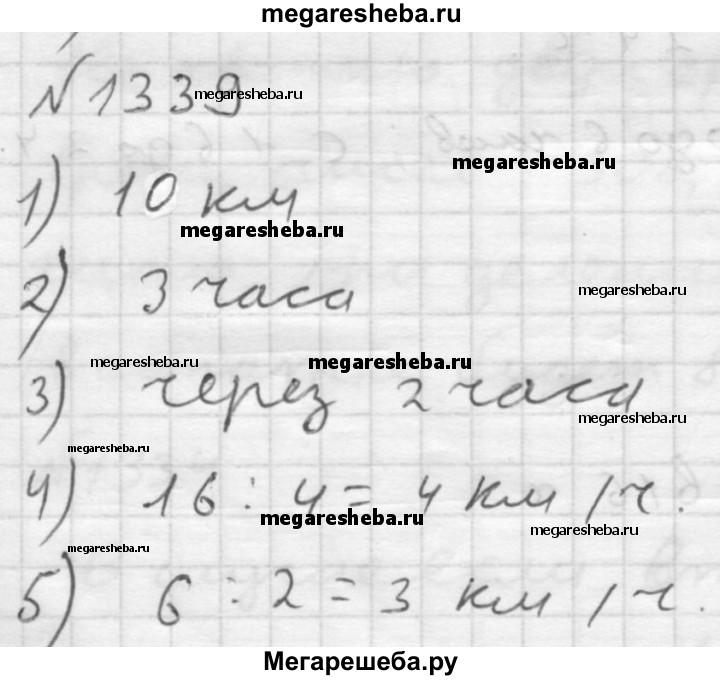 megaresheba.ru
N 1339
megaresheba.ru
megaresheba.ru
1) 10 км
megaresheba.ru
2) 3 часа
megaresheba.ru
megaresheba.ru
megaresheba.ru
3) через 2 часа
megaresheba.ru
megaresheba.ru
4) 16 : 4 = 4 км/ч.
megaresheba.ru
megaresheba.ru
megaresheba.ru
5) 6 : 2 = 3 км/ч.
Мегарешеба.ру